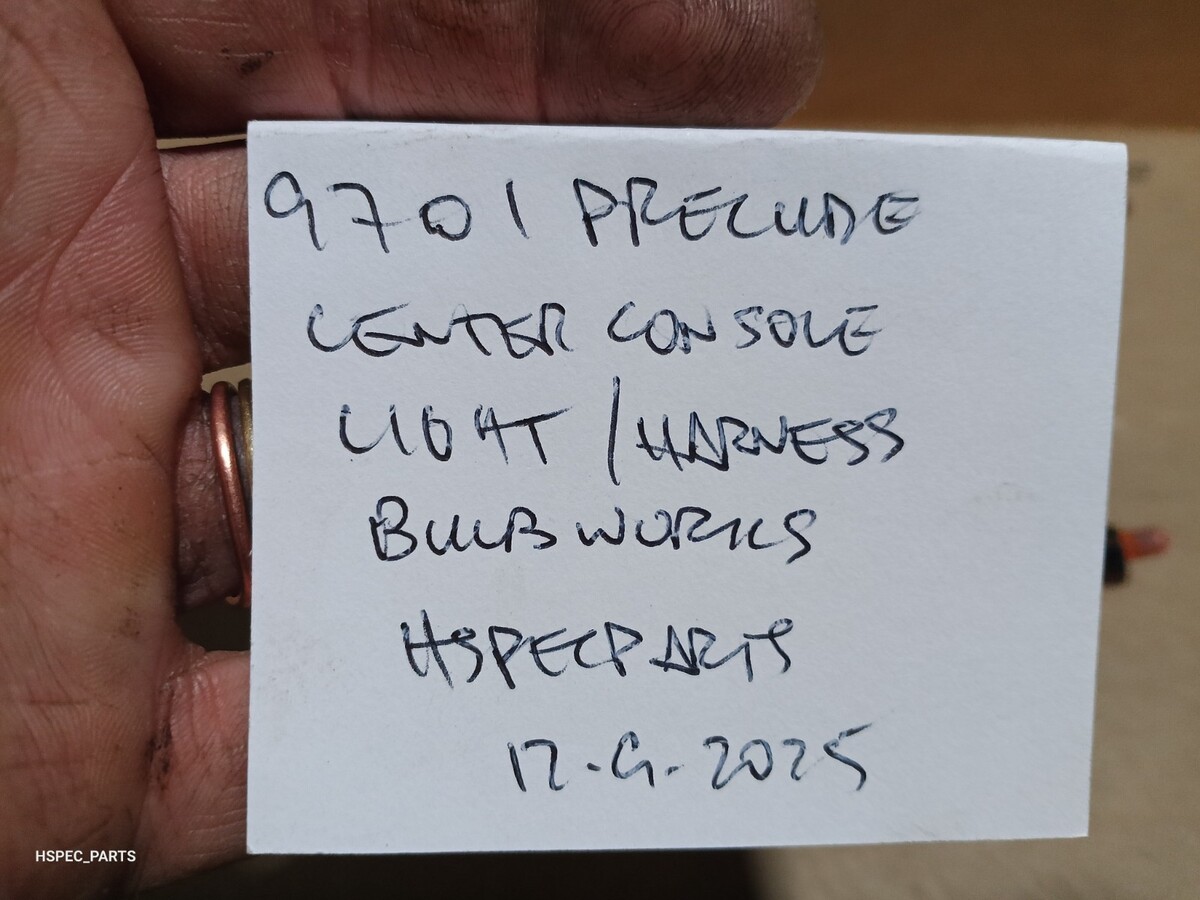 9701 PRELUDE
CENTER CONSOLE
LIGHT / HARNESS
BULB WORKS
HSPECPARTS
12.9.2025
HSPEC_PARTS